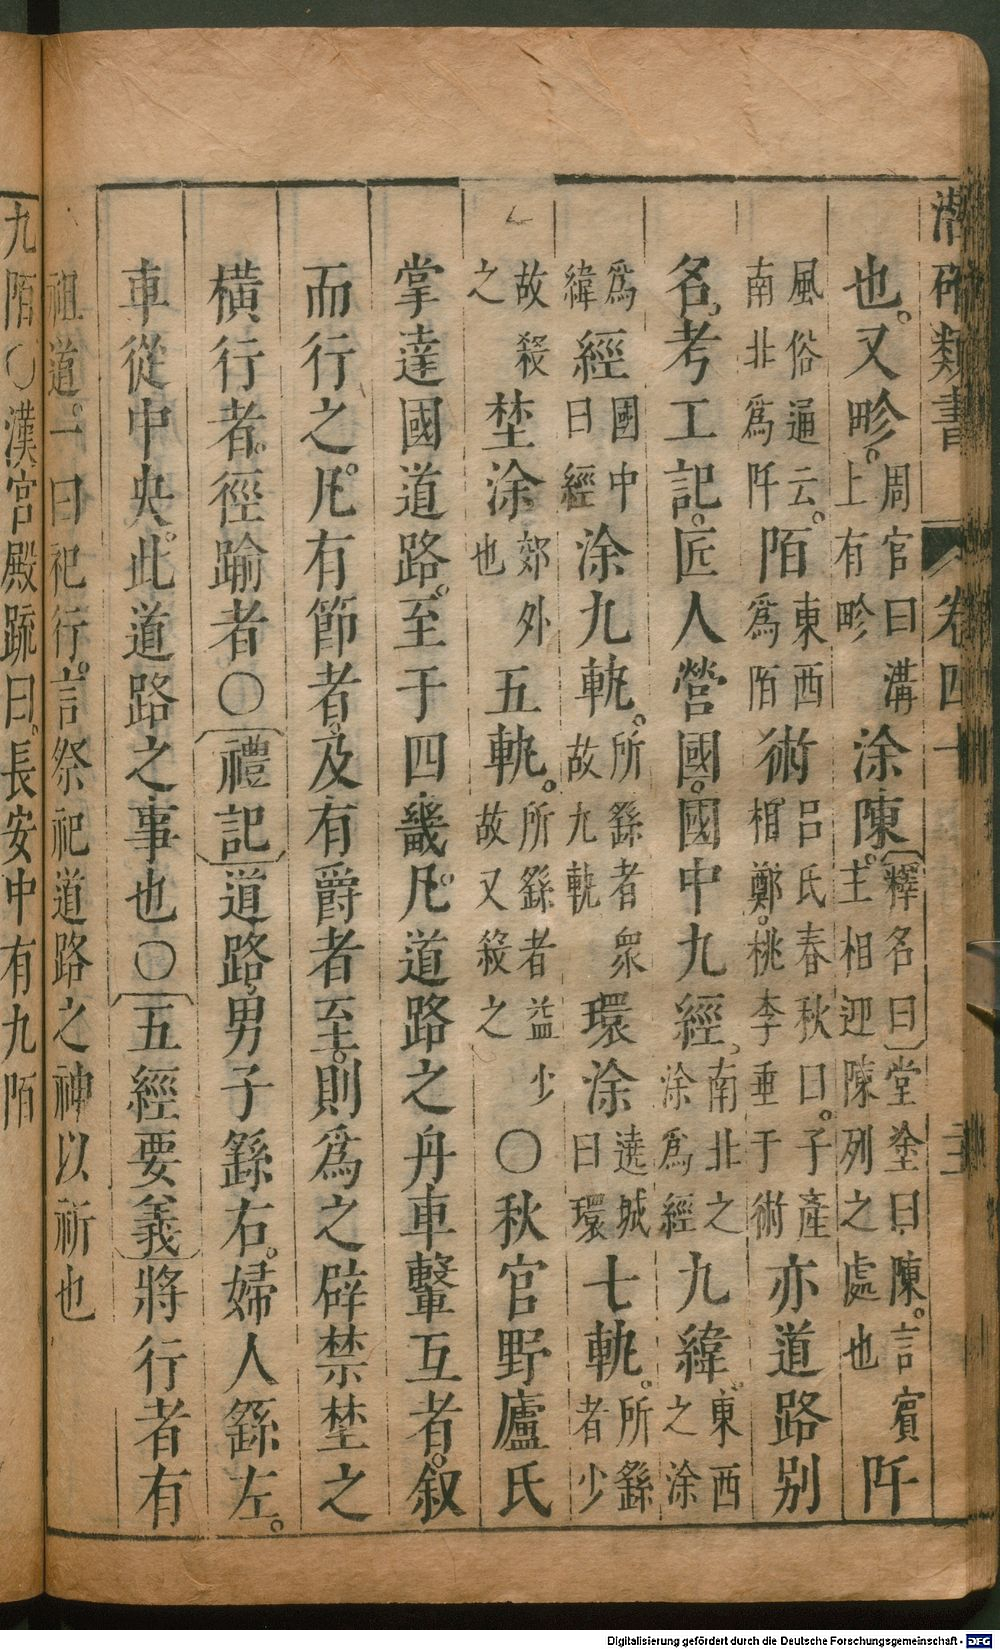 潛确類書 卷四十
也。又畛。周官曰溝上有畛涂陳。釋名曰堂塗曰陳。言賓主相迎陳列之處也阡
風俗通云。南北爲阡陌東西爲陌術呂氏春秋曰。子產相鄭。桃李垂于術亦道路别
名。考工記。匠人營國。國中九經。南北之涂爲經九緯。東西之涂
爲緯經國中曰經涂九軌。所繇者衆故九軌環涂遶城曰環七軌。所繇者少
故殺之埜涂郊外也五軌。所繇者益少故又殺之〇秋官野廬氏
掌達國道路。至于四畿。凡道路之舟車轚互者。叙
而行之。凡有節者及有爵者至。則爲之辟禁埜之
橫行者。徑踰者〇禮記道路。男子繇右。婦人繇左。
車從中央。此道路之事也〇五經要義將行者有
祖道。一曰祀行。言祭祀道路之神以祈也
九陌〇漢宮殿疏曰。長安中有九陌
Digitalisierung gefördert durch die Deutsche Forschungsgemeinschaft - DFG